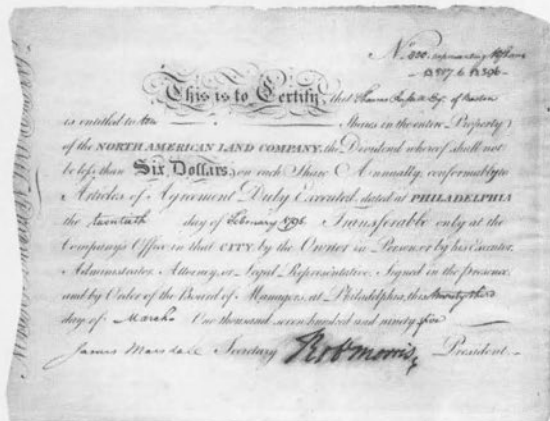 No. 200. representing 10 Shares
This is to Certify, that Thomas Russell Esqr. of Boston
is entitled to ten Shares in the entire Property
of the NORTH AMERICAN LAND COMPANY, the Dividend whereof shall not
be less than Six Dollars, on each Share Annually, conformably to
Articles of Agreement Duly Executed, dated at PHILADELPHIA
the twentieth day of February 1795 Transferable only at the
Company's Office in that CITY, by the Owner in Person, or by his Executor,
Administrator, Attorney, or Legal Representative. Signed in the presence
and by Order of the Board of Managers, at Philadelphia, this twenty third
day of March One thousand seven hundred and ninety five
James Marshall Secretary Robt Morris President